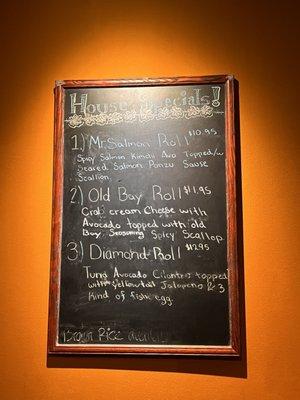 House Specials!
1) Mr. Salmon Roll $10.95
Spicy Salmon Kimchi Avo Topped/w
Seared Salmon Ponzu Sause
Scallion.
2) Old Bay Roll $11.95
Crab cream Cheese with
Avocado topped with old
Bay Seasoning Spicy Scallop
3) Diamond Roll $12.95
Tuna Avocado Cilantro topped
with Yellowtail Jalapeno & 3
Kind of fish egg.
Brown Rice